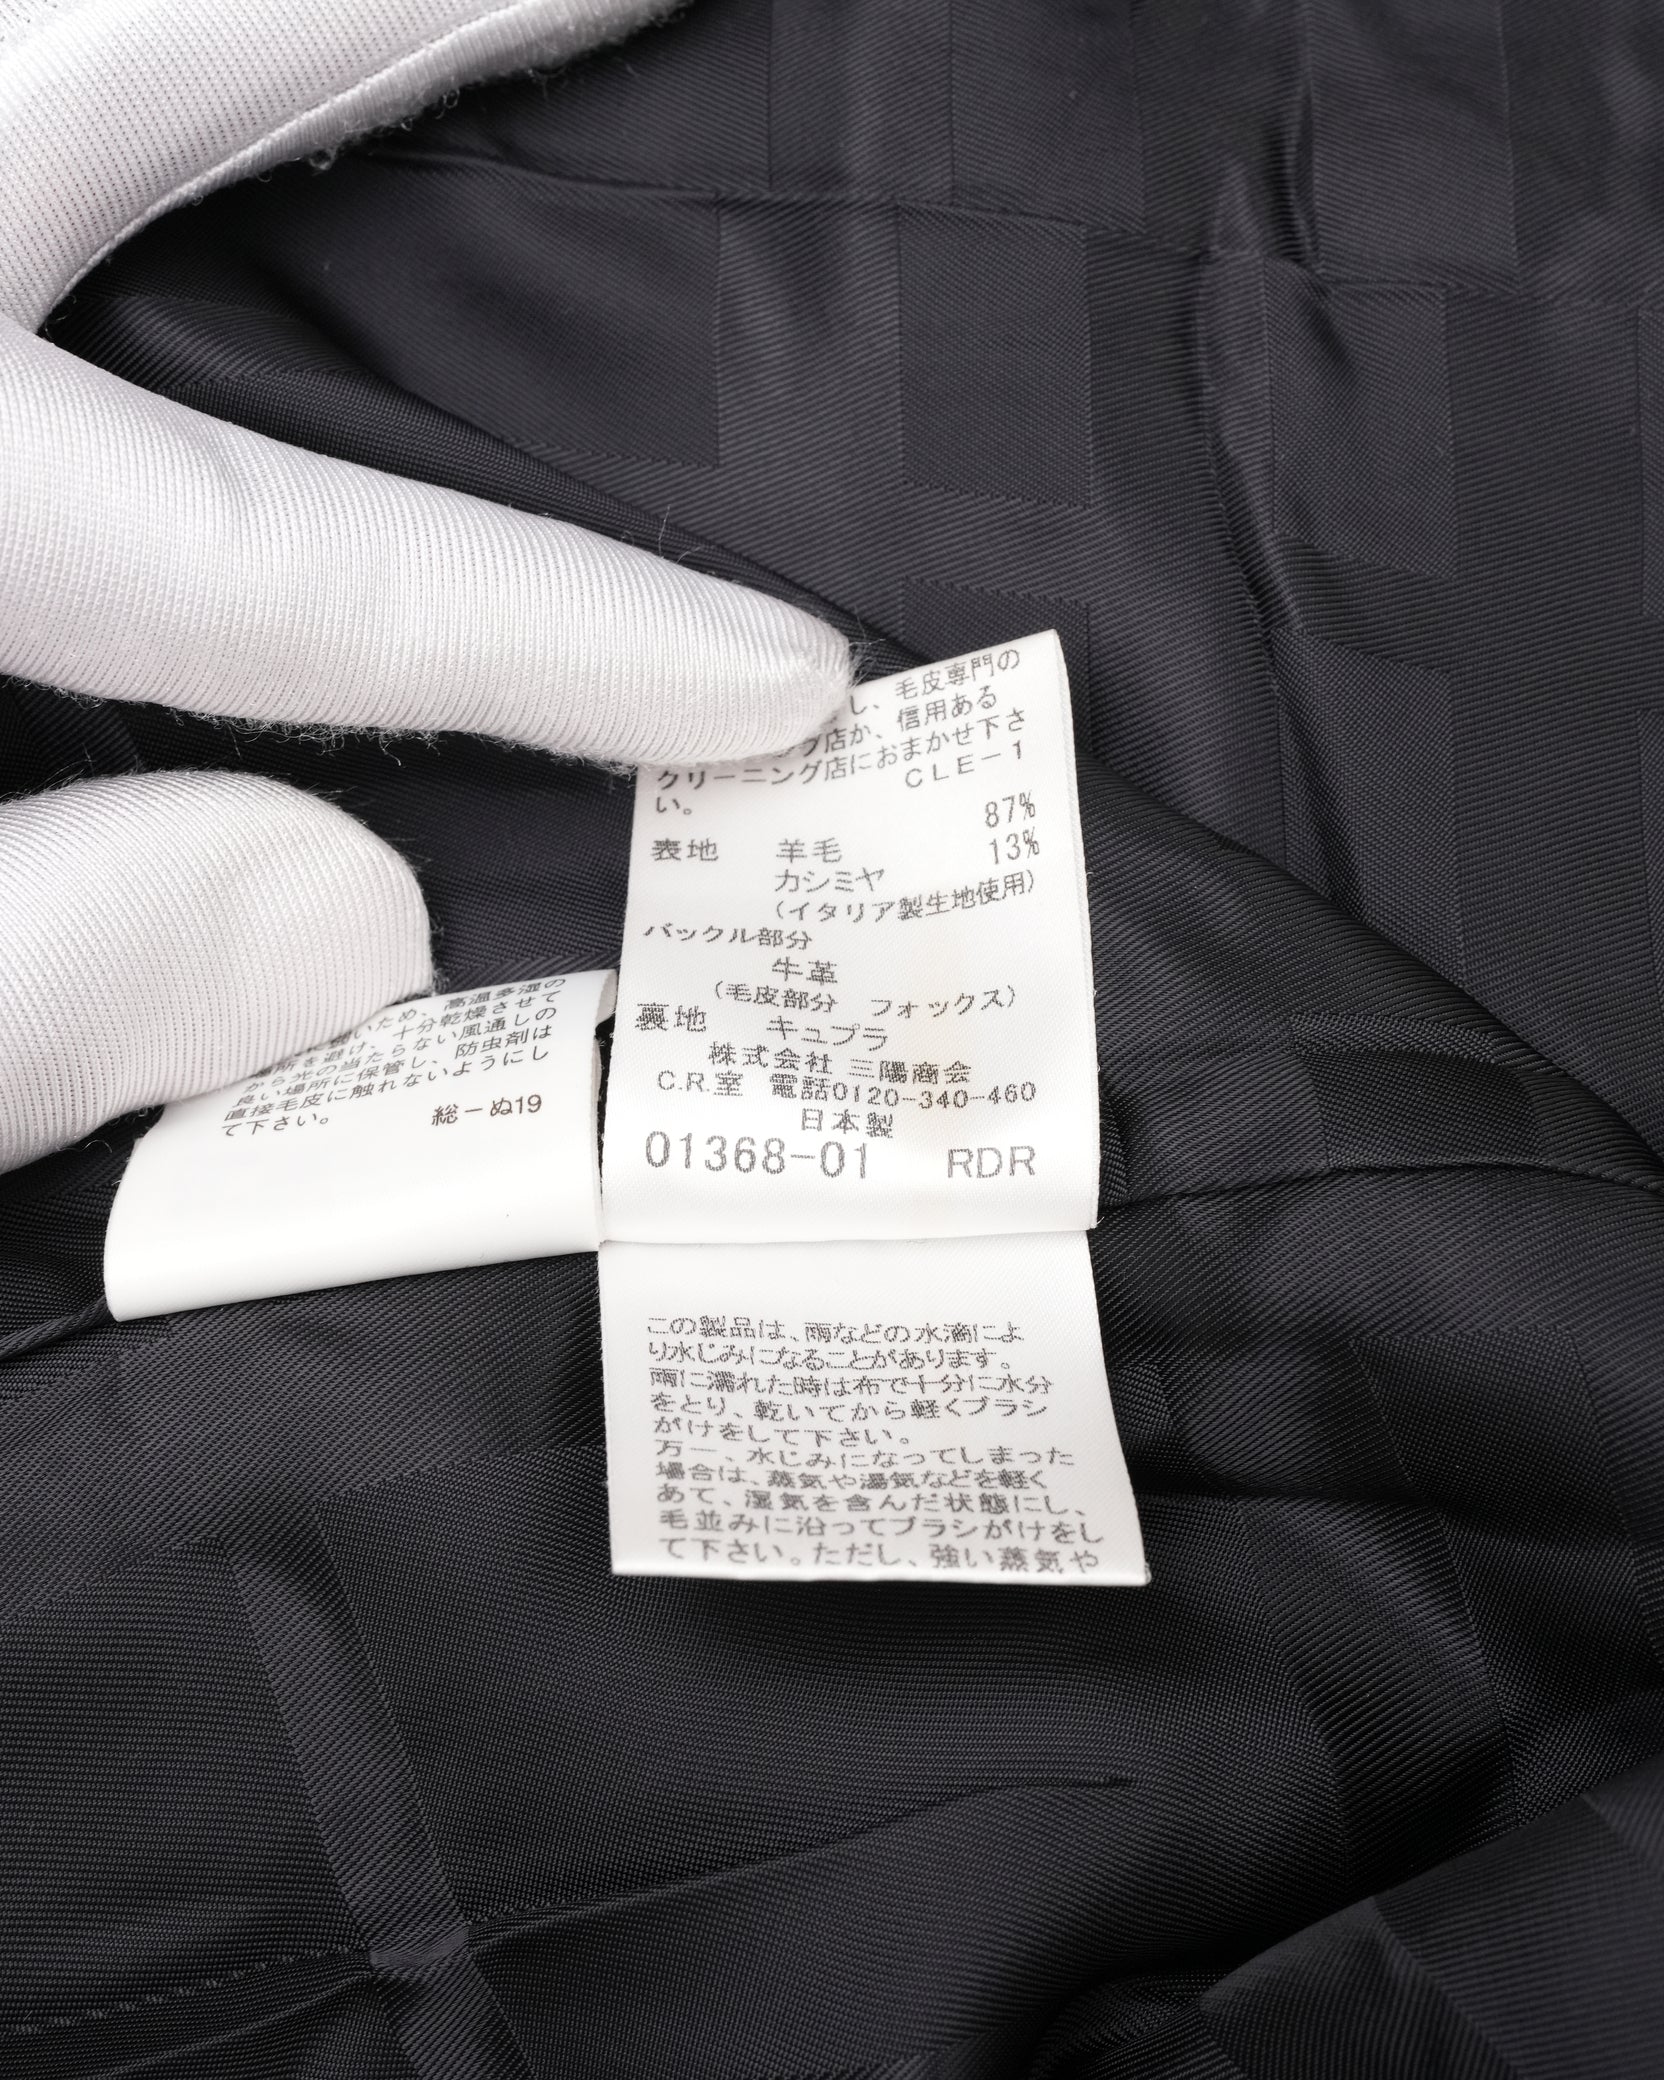 毛皮専門の
し、信用ある
店か、
クリーニング店におまかせ下さ
い。
CLE-1
表地 羊毛 87%
カシミヤ 13%
(イタリア製生地使用)
バックル部分
牛革
(毛皮部分 フォックス)
裏地 キュプラ
株式会社 三陽商会
C.R.室 電話0120-340-460
日本製
01368-01 RDR
高温多湿の
ため、十分乾燥させて
所を避け、風通しの
から光の当たらない
良い場所に保管し、防虫剤は
直接毛皮に触れないようにし
て下さい。
総-ぬ19
この製品は、雨などの水滴によ
り水じみになることがあります。
雨に濡れた時は布で十分に水分
をとり、乾いてから軽くブラシ
がけをして下さい。
万一、水じみになってしまった
場合は、蒸気や湯気などを軽く
あて、湿気を含んだ状態にし、
毛並みに沿ってブラシがけをし
て下さい。ただし、強い蒸気や